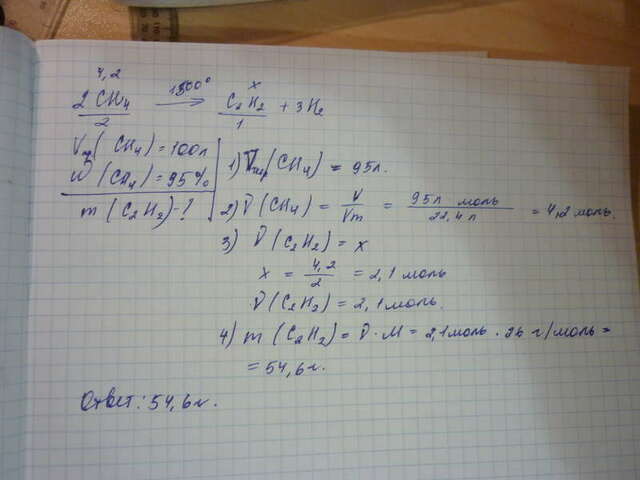 4,2 1500° x
2CH₄ → C₂H₂ + 3H₂
2 1
Vпр(CH₄) = 100л
W(CH₄) = 95%
m(C₂H₂) - ?
1) V(CH₄) = 95л.
2) ν(CH₄) = V/Vm = 95л моль/22,4л = 4,2 моль.
3) ν(C₂H₂) = x
x = 4,2/2 = 2,1 моль
ν(C₂H₂) = 2,1 моль.
4) m(C₂H₂) = ν · M = 2,1 моль · 26 г/моль =
= 54,6 г.
Ответ: 54,6 г.